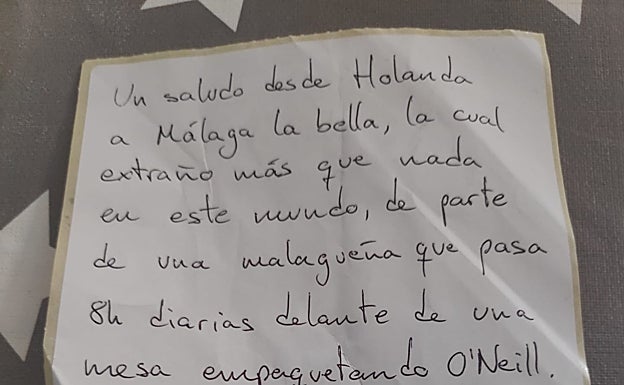 Un saludo desde Holanda
a Málaga la bella, la cual
extraño más que nada
en este mundo, de parte
de una malagueña que pasa
8h diarias delante de una
mesa empaquetando O'Neill.